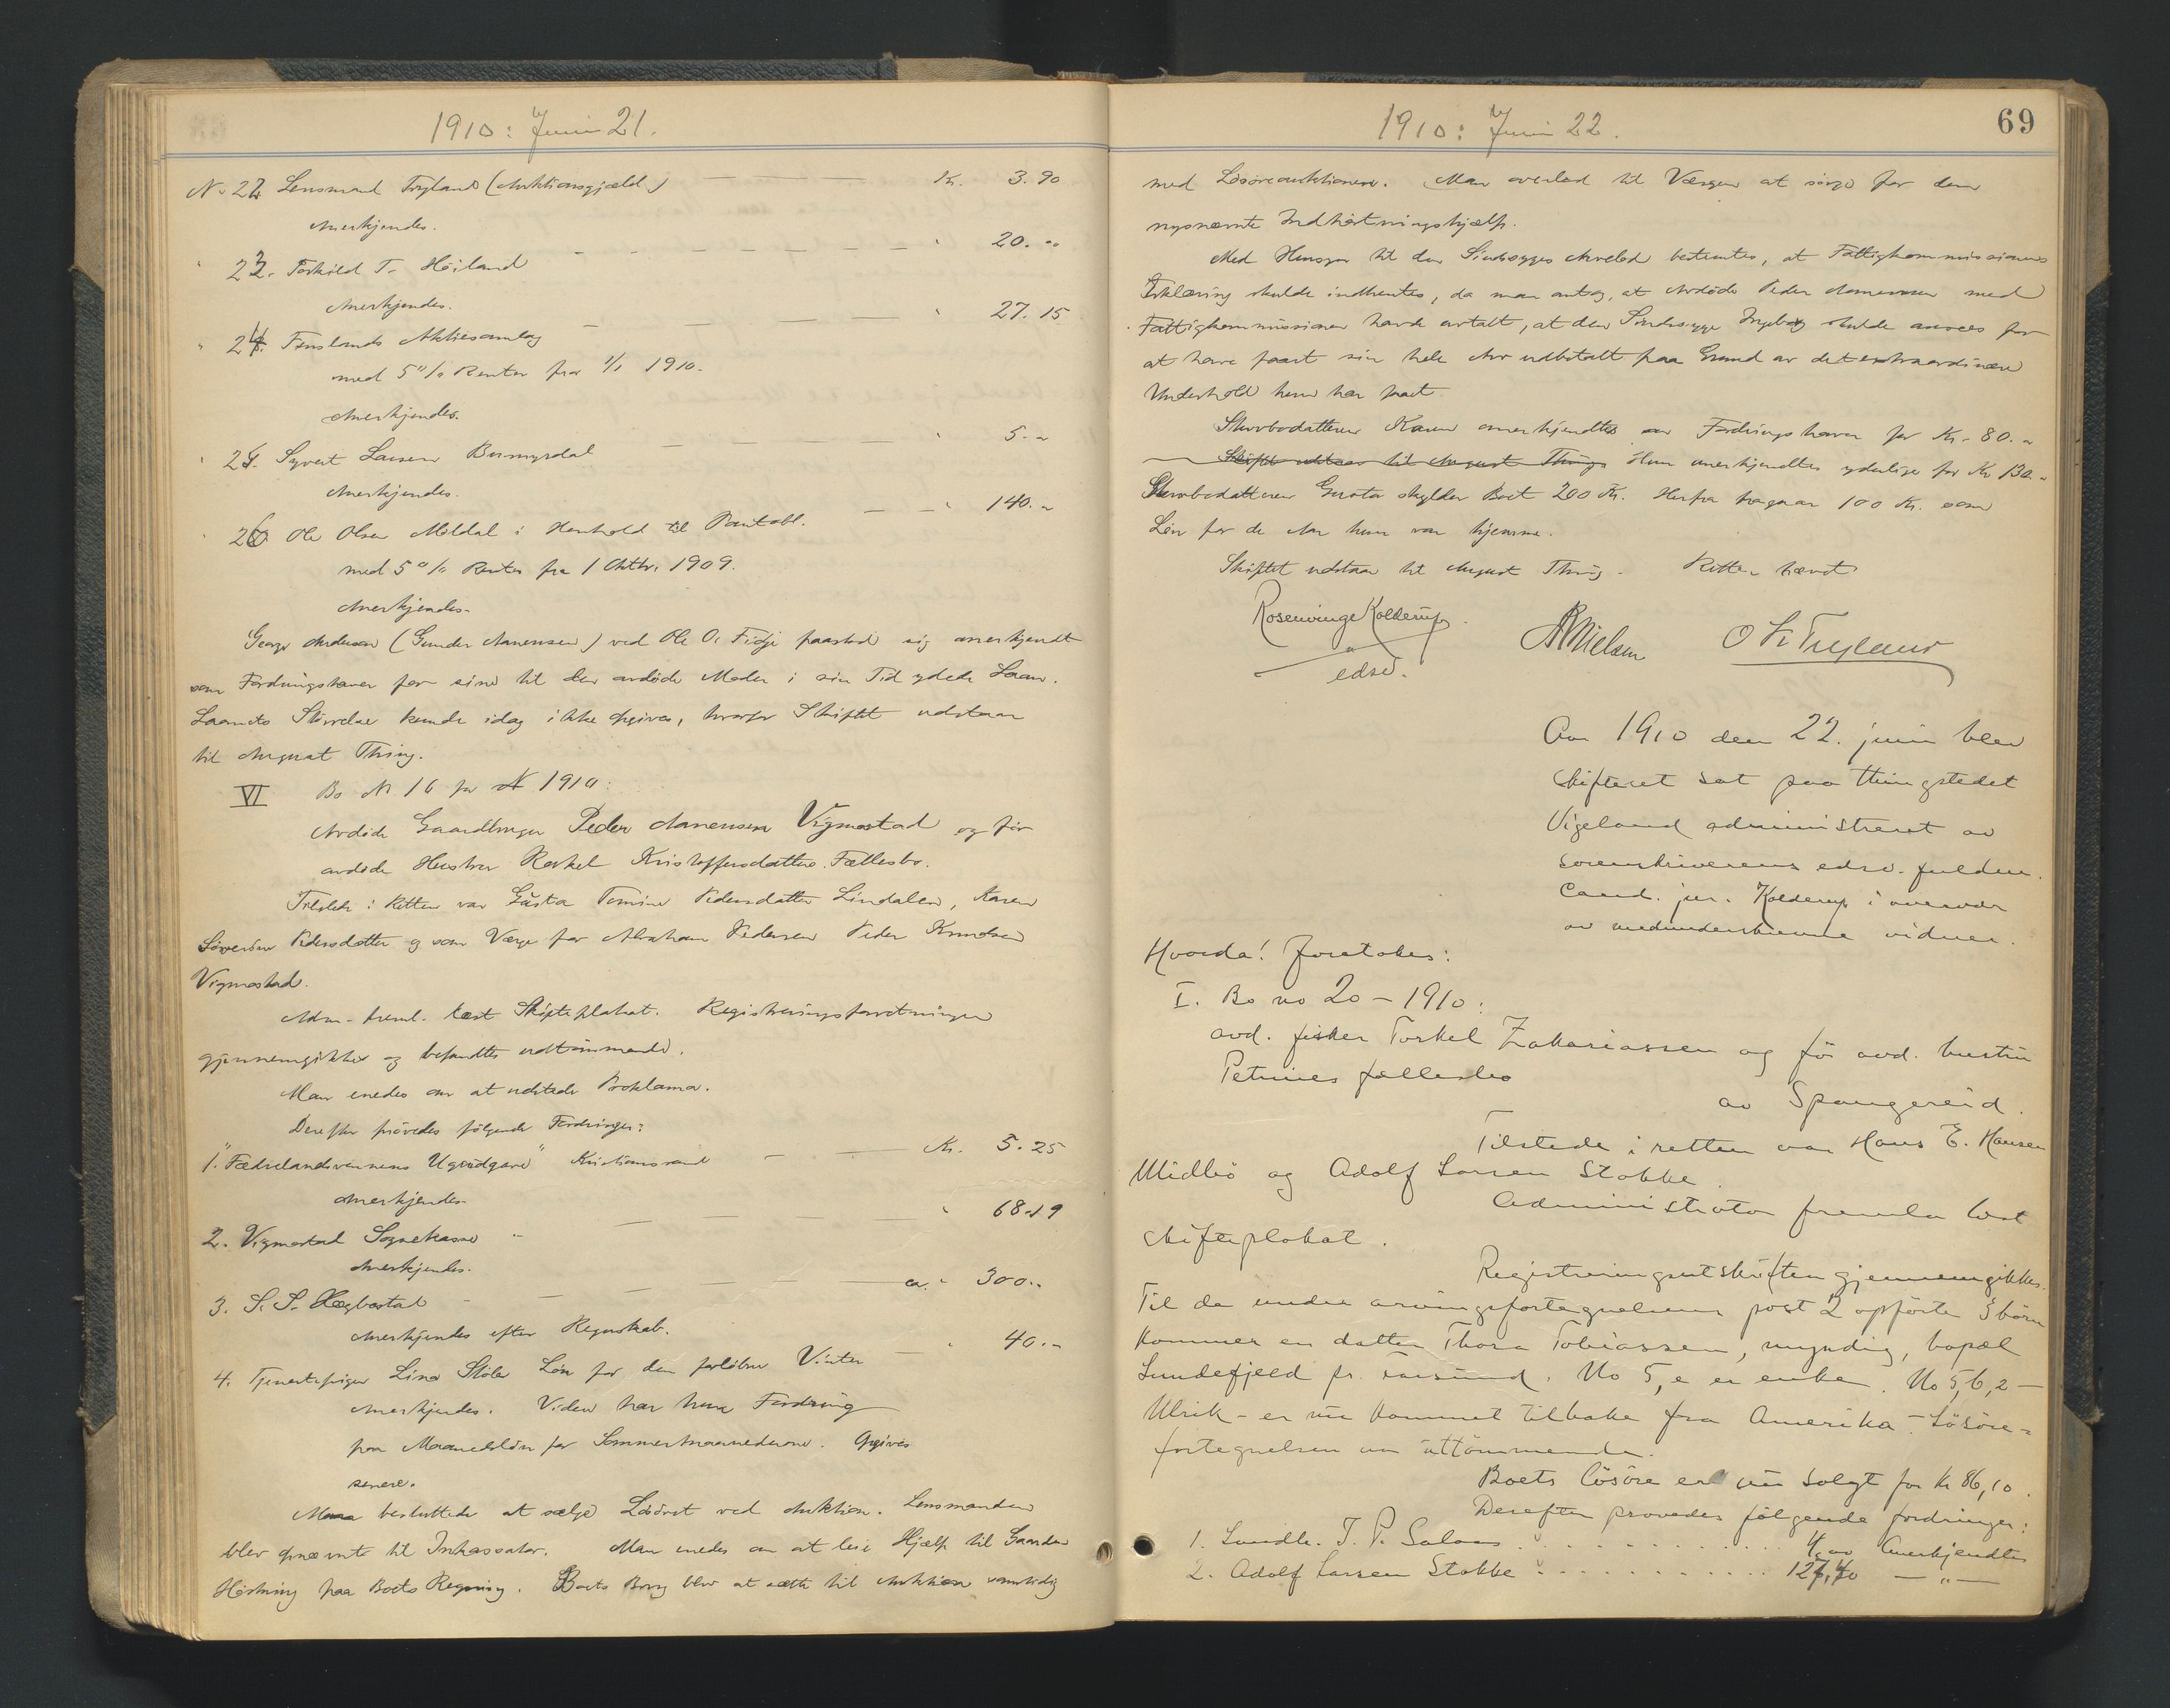 1910: Juni 21.
No 22 Lensmand Trygland (Auktionsgjæld) — — — Kr. 3.90
Anerkjendes.
" 23. Torkild T. Høiland - - - - " 20."
Anerkjendes.
" 24. Finslands Aktiesamlag — — — " 27.15
med 5 % Renter fra 1/1 1910.
Anerkjendes.
" 25. Syvert Larsen — — — " 5."
Anerkjendes.
" 26 Ole Olsen Møldal i Henhold til Pantobl. — — " 140."
med 5 % Renter fra 1 Oktbr. 1909.
Anerkjendes.
Georg Andersen (Gunder Aanensen) ved Ole O. Fidje paastod sig anerkjendt
som Fordringshaver for sine til den avdøde Moder i sin Tid ydede Laan.
Laanets Størrelse kunde idag ikke opgives, hvorfor Skiftet udstaar
til August Thing.
VI Bo No 16 for 1910:
Avdøde Gaardbruger Peder Aanensen Vigmostad og før
avdøde Hustru Rakel Kristoffersdatters Fællesbo.
Tilstede i Retten var Gusta Tomine Pedersdatter Lindalen, Karen
Severine Pedersdatter og som Værge for Abraham Pedersen Peder Knudsen
Vigmostad.
Adm. freml. læst Skifteplakat. Registreringsforretningen
gjennemgikkes og befandtes udtømmende.
Man enedes om at udstede Proklama.
Derefter prøvedes følgende Fordringer:
1. "Fædrelandsvennens Ugeudgave" Kristianssand — — Kr. 5.25
Anerkjendes.
2. Vigmostad Sognekasse " — — — " 68.19
Anerkjendes.
3. S. S. Hægbostad - — — — ca. " 300."
Anerkjendes efter Regnskab.
4. Tjenestepigen Lina Støle Løn for den forløbne Vinter — " 40."
Anerkjendes. Viden har hun Fordring
paa Maanedsløn for Sommermaanederne. Opgives
senere.
Man besluttede at sælge Løsøret ved Auktion. Lensmanden
blev opnævnt til Inkassator. Man enedes om at leie Hjælp til Gaardens
Høstning paa Boets Regning. Boets Brug blev at sætte til Auktion samtidig
1910: Juni 22.
69
med Løsøreauktionen. Man overlod til Værgen at sørge for den
nysnævnte Indhøstningshjælp.
Med Hensyn til den Sindssyges Arvelod bestemtes, at Fattigkommissionens
Erklæring skulde indhentes, da man antog, at avdøde Peder Aanensen med
Fattigkommissionen havde avtalt, at den Sindssyge Ingeborg skulde ansees for
at have faaet sin hele Arv udbetalt paa Grund av det extraordinære
Underhold hun har faaet.
Stervbodatteren Karen anerkjendtes som Fordringshaver for Kr. 80."
Skiftet udstaar til August Thing. Hun anerkjendtes yderligere for Kr 130."
Stervbodatteren Gusta skylder Boet 200 Kr. Herfra fragaar 100 Kr. som
Løn for de Aar hun var hjemme.
Skiftet udstaar til August Thing. Retten hævet
Rosenvinge Kolderup
edsv.
A Nielsen
O K Trygland
Aar 1910 den 22. juni blev
skifteret sat paa thingstedet
Vigeland administreret av
sorenskriverens edsv. fuldm.
Cand. jur. Kolderup i overvær
av medunderskrevne vidner.
Hvorda! foretokes:
I. Bo no 20 – 1910:
avd. fisker Torkel Zakariassen og før avd. hustru
Petrines fællesbo
av Spangereid.
Tilstede i retten var Hans E. Hansen
Midbø og Adolf Larsen Stokke.
Administrator fremla læst
skifteplakat.
Registreringsutskriften gjennemgikkes.
Til de under arvingsfortegnelsens post 2 opførte 3 børn
kommer en datter Thora Tobiassen, myndig, bopæl
Lundefjeld pr. Farsund. No 5, e er enke. No 5, 6, 2 –
Ulrik – er nu kommet tilbake fra Amerika. – Løsøre-
fortegnelsen var uttømmende.
Boets løsøre er nu solgt for kr 86,10.
Derefter prøvedes følgende fordringer:
1. Landh. J. P. Salves . . . . . . 4,00 Anerkjendtes
2. Adolf Larsen Stokke . . . . . . 127,40 — " —